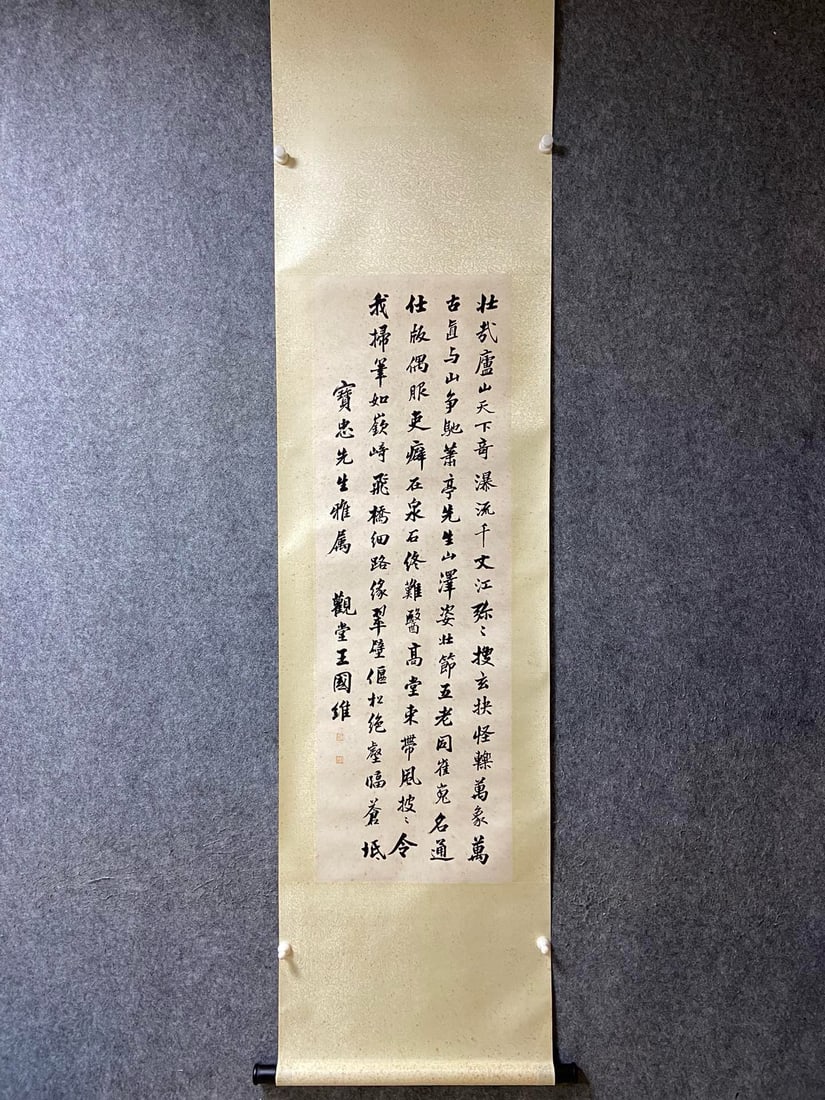 壮哉廬山天下奇瀑流千丈江弥〻搜玄抉怪轢萬象萬
古直与山争馳蕭亭先生山澤姿壮節五老同崔嵬名通
仕版偶服吏癖在泉石终難醫髙堂束帶風披〻令
我掃筆如嶔崎飛橋細路緣翠壁傴松绝壑臨蒼坻
寶忠先生雅属 觀堂王國維